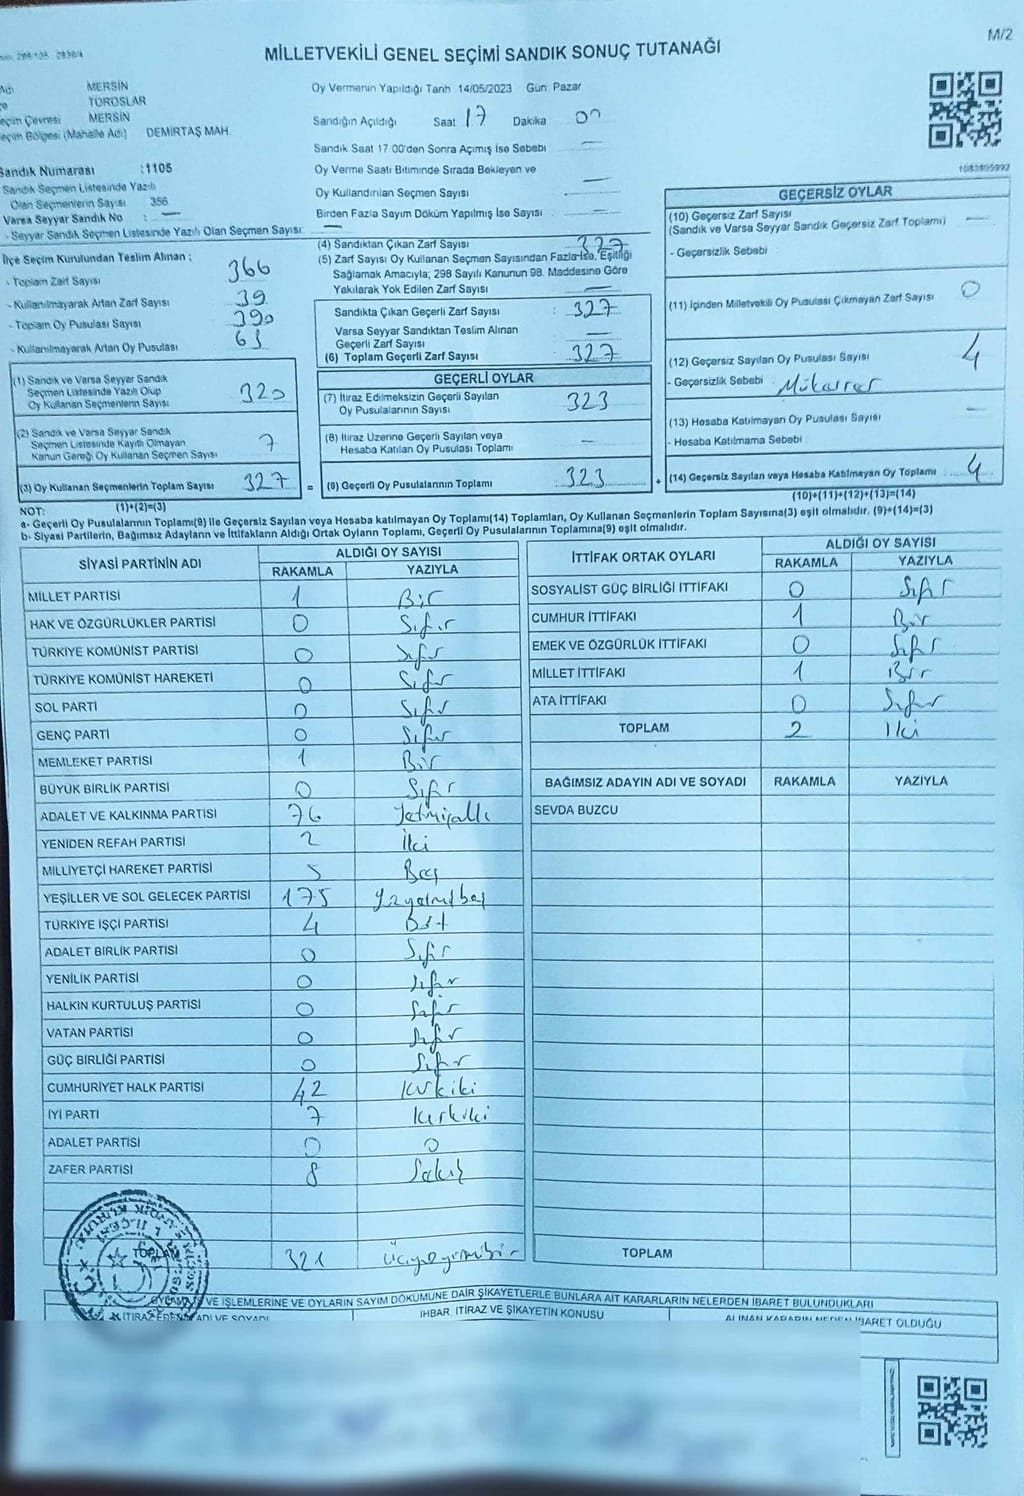 M/2
MİLLETVEKİLİ GENEL SEÇİMİ SANDIK SONUÇ TUTANAĞI
Adı MERSİN
TOROSLAR
eçim Çevresi MERSİN
eçim Bölgesi (Mahalle Adı) DEMİRTAŞ MAH.
Sandık Numarası :1105
Sandık Seçmen Listesinde Yazılı
Olan Seçmenlerin Sayısı 356
Varsa Seyyar Sandık No : —
- Seyyar Sandık Seçmen Listesinde Yazılı Olan Seçmen Sayısı: —
Oy Vermenin Yapıldığı Tarih 14/05/2023 Gün Pazar
Sandığın Açıldığı Saat 17 Dakika 00
Sandık Saat 17 00'den Sonra Açımış İse Sebebi —
Oy Verme Saati Bitiminde Sırada Bekleyen ve
Oy Kullandırılan Seçmen Sayısı —
Birden Fazla Sayım Döküm Yapılmış İse Sayısı —
1083895992
İlçe Seçim Kurulundan Teslim Alınan ;
- Toplam Zarf Sayısı 366
- Kullanılmayarak Artan Zarf Sayısı 39
- Toplam Oy Pusulası Sayısı 390
- Kullanılmayarak Artan Oy Pusulası 63
(1) Sandık ve Varsa Seyyar Sandık
Seçmen Listesinde Yazılı Olup
Oy Kullanan Seçmenlerin Sayısı 320
(2) Sandık ve Varsa Seyyar Sandık
Seçmen Listesinde Kayıtlı Olmayan
Kanun Gereği Oy Kullanan Seçmen Sayısı 7
(3) Oy Kullanan Seçmenlerin Toplam Sayısı 327 =
(1)+(2)=(3)
(4) Sandıktan Çıkan Zarf Sayısı 327
(5) Zarf Sayısı Oy Kullanan Seçmen Sayısından Fazla İse, Eşitliği
Sağlamak Amacıyla; 298 Sayılı Kanunun 98. Maddesine Göre
Yakılarak Yok Edilen Zarf Sayısı —
Sandıkta Çıkan Geçerli Zarf Sayısı : 327
Varsa Seyyar Sandıktan Teslim Alınan
Geçerli Zarf Sayısı —
(6) Toplam Geçerli Zarf Sayısı : 327
GEÇERLİ OYLAR
(7) İtiraz Edilmeksizin Geçerli Sayılan
Oy Pusulalarının Sayısı 323
(8) İtiraz Üzerine Geçerli Sayılan veya
Hesaba Katılan Oy Pusulası Toplamı —
(9) Geçerli Oy Pusulalarının Toplamı 323 +
GEÇERSİZ OYLAR
(10) Geçersiz Zarf Sayısı
(Sandık ve Varsa Seyyar Sandık Geçersiz Zarf Toplamı) —
- Geçersizlik Sebebi
(11) İçinden Milletvekili Oy Pusulası Çıkmayan Zarf Sayısı 0
(12) Geçersiz Sayılan Oy Pusulası Sayısı 4
- Geçersizlik Sebebi Mükerrer
(13) Hesaba Katılmayan Oy Pusulası Sayısı —
- Hesaba Katılmama Sebebi
(14) Geçersiz Sayılan veya Hesaba Katılmayan Oy Toplamı 4
(10)+(11)+(12)+(13)=(14)
NOT:
a- Geçerli Oy Pusulalarının Toplamı(9) ile Geçersiz Sayılan veya Hesaba katılmayan Oy Toplamı(14) Toplamları, Oy Kullanan Seçmenlerin Toplam Sayısına(3) eşit olmalıdır. (9)+(14)=(3)
b- Siyasi Partilerin, Bağımsız Adayların ve İttifakların Aldığı Ortak Oyların Toplamı, Geçerli Oy Pusulalarının Toplamına(9) eşit olmalıdır.
SİYASİ PARTİNİN ADI ALDIĞI OY SAYISI
RAKAMLA YAZIYLA
MİLLET PARTİSİ 1 Bir
HAK VE ÖZGÜRLÜKLER PARTİSİ 0 Sıfır
TÜRKİYE KOMÜNİST PARTİSİ 0 Sıfır
TÜRKİYE KOMÜNİST HAREKETİ 0 Sıfır
SOL PARTİ 0 Sıfır
GENÇ PARTİ 0 Sıfır
MEMLEKET PARTİSİ 1 Bir
BÜYÜK BİRLİK PARTİSİ 0 Sıfır
ADALET VE KALKINMA PARTİSİ 76 Yetmişaltı
YENİDEN REFAH PARTİSİ 2 İki
MİLLİYETÇİ HAREKET PARTİSİ 5 Beş
YEŞİLLER VE SOL GELECEK PARTİSİ 175
TÜRKİYE İŞÇİ PARTİSİ 4
ADALET BİRLİK PARTİSİ 0 Sıfır
YENİLİK PARTİSİ 0 Sıfır
HALKIN KURTULUŞ PARTİSİ 0 Sıfır
VATAN PARTİSİ 0 Sıfır
GÜÇ BİRLİĞİ PARTİSİ 0 Sıfır
CUMHURİYET HALK PARTİSİ 42 Kırkiki
İYİ PARTİ 7 Kırkiki
ADALET PARTİSİ 0 0
ZAFER PARTİSİ 8 Sekiz
TOPLAM 321 Üçyüzyirmibir
İTTİFAK ORTAK OYLARI ALDIĞI OY SAYISI
RAKAMLA YAZIYLA
SOSYALİST GÜÇ BİRLİĞİ İTTİFAKI 0 Sıfır
CUMHUR İTTİFAKI 1 Bir
EMEK VE ÖZGÜRLÜK İTTİFAKI 0 Sıfır
MİLLET İTTİFAKI 1 Bir
ATA İTTİFAKI 0 Sıfır
TOPLAM 2 İki
BAĞIMSIZ ADAYIN ADI VE SOYADI RAKAMLA YAZIYLA
SEVDA BUZCU
TOPLAM
VE İŞLEMLERİNE VE OYLARIN SAYIM DÖKÜMÜNE DAİR ŞİKAYETLERLE BUNLARA AİT KARARLARIN NELERDEN İBARET BULUNDUKLARI
İTİRAZ EDENİN ADI VE SOYADI İHBAR, İTİRAZ VE ŞİKAYETİN KONUSU ALINAN KARARIN NEDEN İBARET OLDUĞU